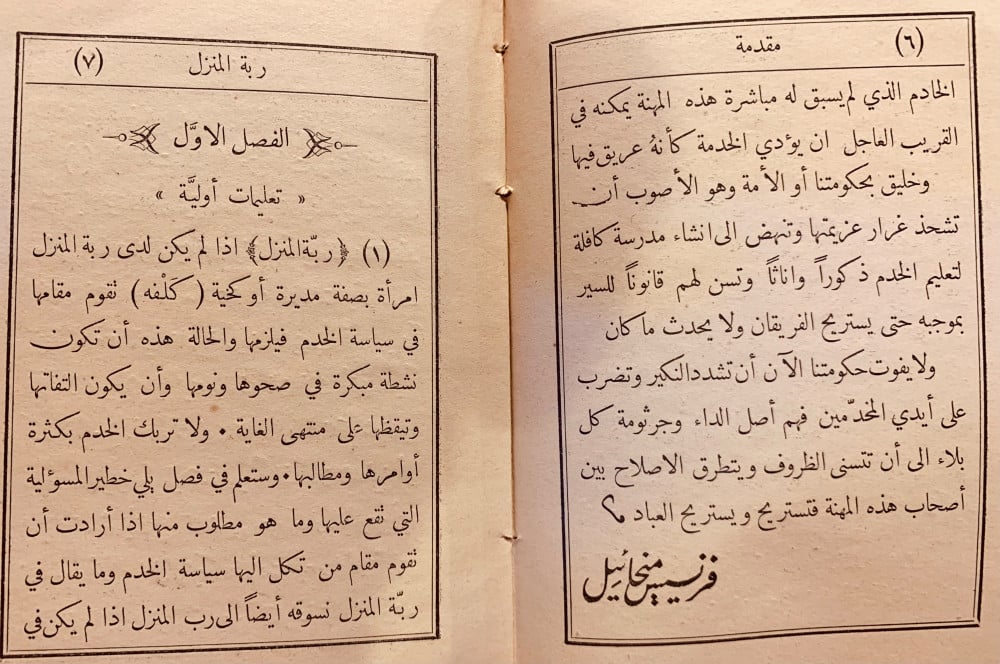 (٦) مقدمة
الخادم الذي لم يسبق له مباشرة هذه المهنة يمكنه في
القريب العاجل ان يؤدي الخدمة كأنهُ عريق فيها
وخليق بحكومتنا أو الأمة وهو الأصوب أن
تشحذ غرار عزيمتها وتنهض الى انشاء مدرسة كافلة
لتعليم الخدم ذكوراً واناثاً وتسن لهم قانوناً للسير
بموجبه حتى يستريح الفريقان ولا يحدث ما كان
ولا يفوت حكومتنا الآن أن تشدد النكير وتضرب
على أيدي المخدّمين فهم أصل الداء وجرثومة كل
بلاء الى أن تتسنى الظروف ويتطرق الاصلاح بين
أصحاب هذه المهنة فتستريح ويستريح العباد
فرنسيس منخائيل
ربة المنزل (٧)
الفصل الاوَّل
« تعليمات أوليَّة »
(١) ﴿ربّة المنزل﴾ اذا لم يكن لدى ربة المنزل
امرأة بصفة مديرة أو كخية (كَلْفه) نقوم مقامها
في سياسة الخدم فيلزمها والحالة هذه أن تكون
نشطة مبكرة في صحوها ونومها وأن يكون التفاتها
وتيقظها على منتهى الغاية • ولا تربك الخدم بكثرة
أوامرها ومطالبها • وستعلم في فصل يلي خطير المسؤلية
التي نقع عليها وما هو مطلوب منها اذا أرادت أن
نقوم مقام من تكل اليها سياسة الخدم وما يقال في
ربّة المنزل نسوقه أيضاً الى رب المنزل اذا لم يكن في